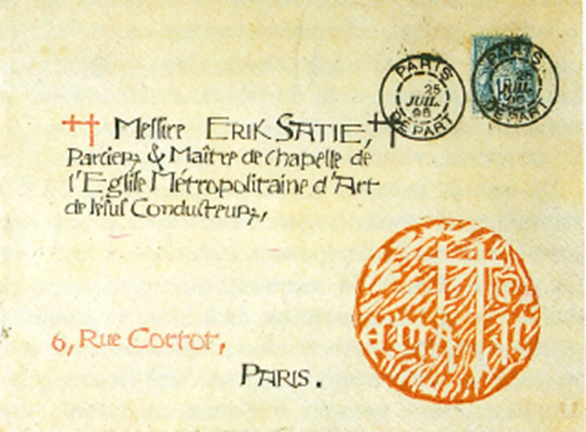 PARIS PARIS
25 25
JUIL JUIL
96
DEPART DEPART
Meſſire ERIK SATIE,
Parcier, & Maître de chapelle de
l'Egliſe Métropolitaine d'Art
de Ieſus Conducteur,
6, Rue Cortot,
PARIS.